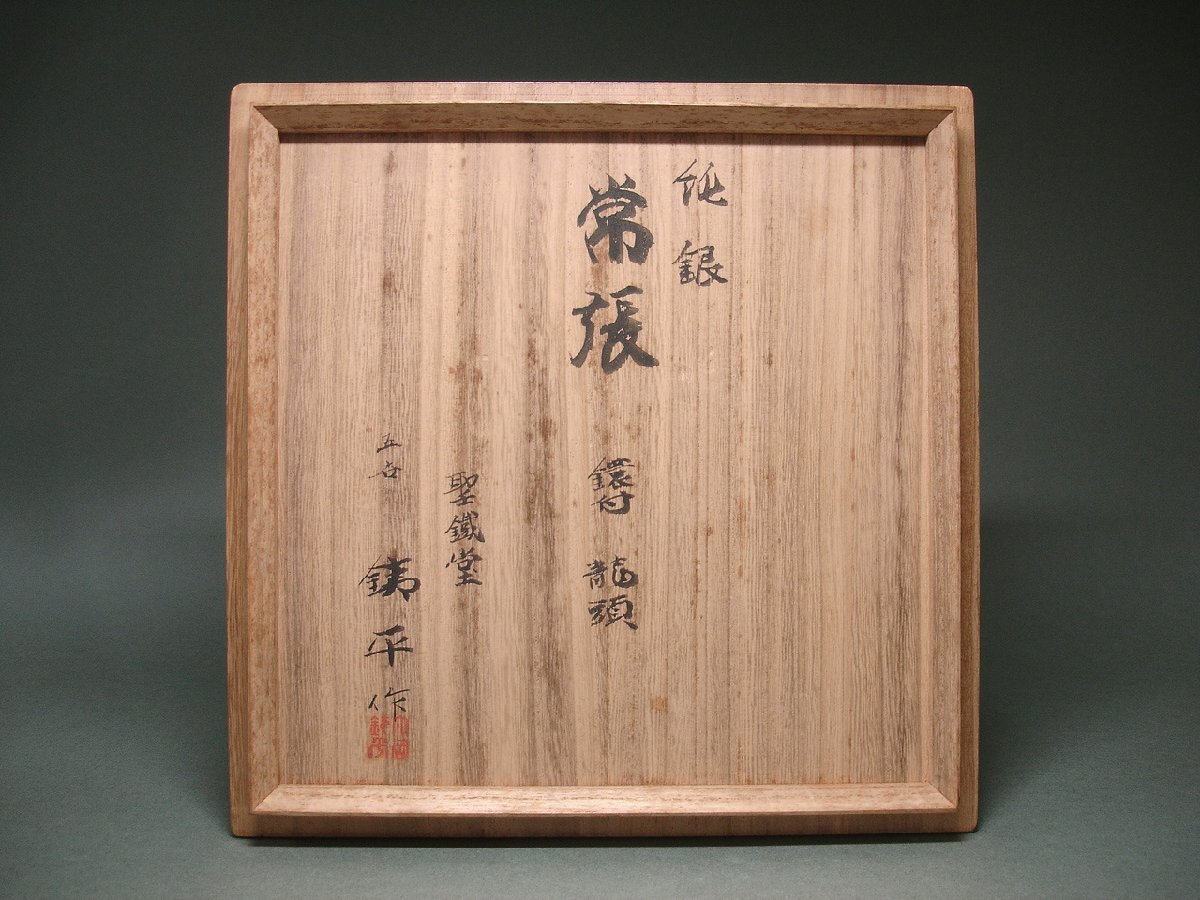 純銀
常張 鐶付 龍頭
聖鐵堂
五台 銕平作